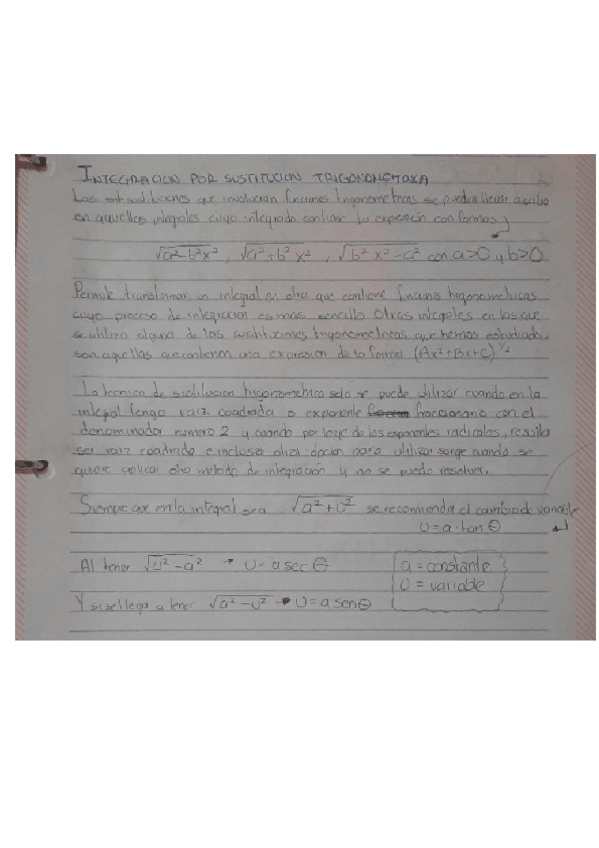 INTEGRACION POR SUSTITUCION TRIGONOMETRICA
Las sustituciones que involucran funciones trigonometricas se pueden llevar acabo
en aquellas integrales cuyo integrado contiene la expresión con formas
√a²-b²x² , √a²+b²x² , √b²x²-a² con a>0 y b>0
Permite transformar un integral en otra que contiene funciones trigonometricas
cuyo proceso de integracion es mas sencillo Otras integrales en las que
se utiliza alguna de las sustituciones trigonometricas que hemos estudiado,
son aquellas que contienen una expresion de la forma (Ax²+Bx+C)^1/2
La tecnica de sustitucion trigonometrica solo se puede utilizar cuando en la
integral tengo raiz cuadrada o exponente fraccionario con el
denominador numero 2 y cuando por leyes de los exponentes radicales, resulta
ser raiz cuadrada e incluso otra opcion para utilizar surge cuando se
quiere aplicar otro metodo de integración y no se puede resolver.
Siempre que en la integral sea √a²+u² se recomienda el cambio de variable
u=a·tan θ
Al tener √u²-a² → u=a sec θ
a=constante
u=variable
Y si se llega a tener √a²-u² → u=a sen θ